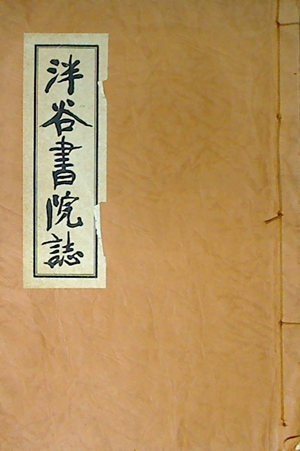 泮谷書院誌